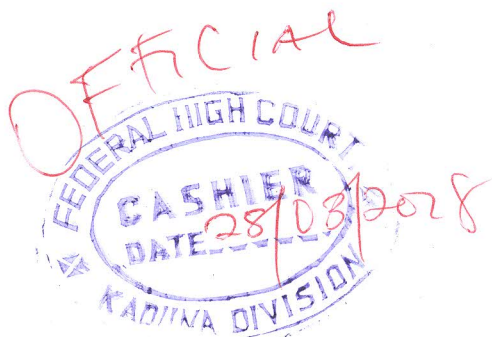 OFFICIAL
FEDERAL HIGH COURT
CASHIER
DATE 28/03/2018
KADUNA DIVISION